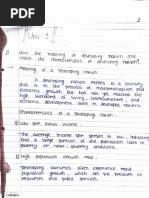 1
Unit - 1
Give the meaning of developing nation and
state the characteristics of developing nation?
Meaning of a developing nation:
A developing nation means is a country
that is in the process of industrialization and
economic growth but has not yet reached the
high standard of living, infrastructure, and
economic development seen in developed nations.
Characteristics of a Developing nation:
Low per capita income:
The average income per person is low, indicating
that a large portion of the population lives in
poverty or near-poverty conditions.
High population growth rate:
Developing countries often experience rapid
population growth, which can put pressure on
resources and public services.